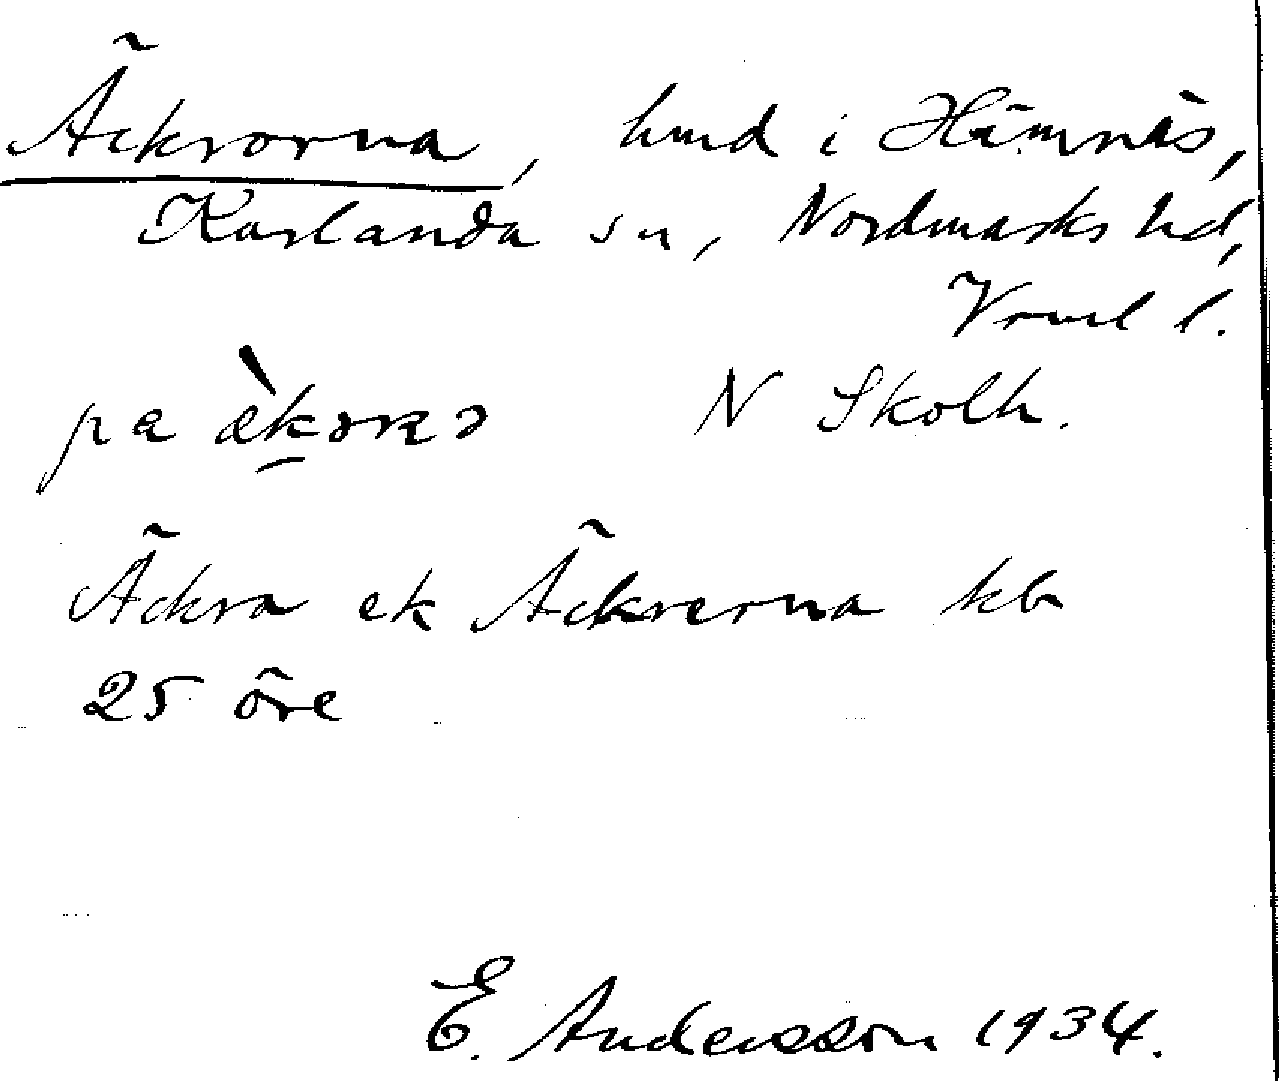 Äckrorna, hmd i Hämnäs,
Karlanda sn, Nordmarks hd,
Vrml l.
pa ækoɴə N Skolh.
Äckra ek Äckrerna kb
25 öre
E. Andersson 1934.